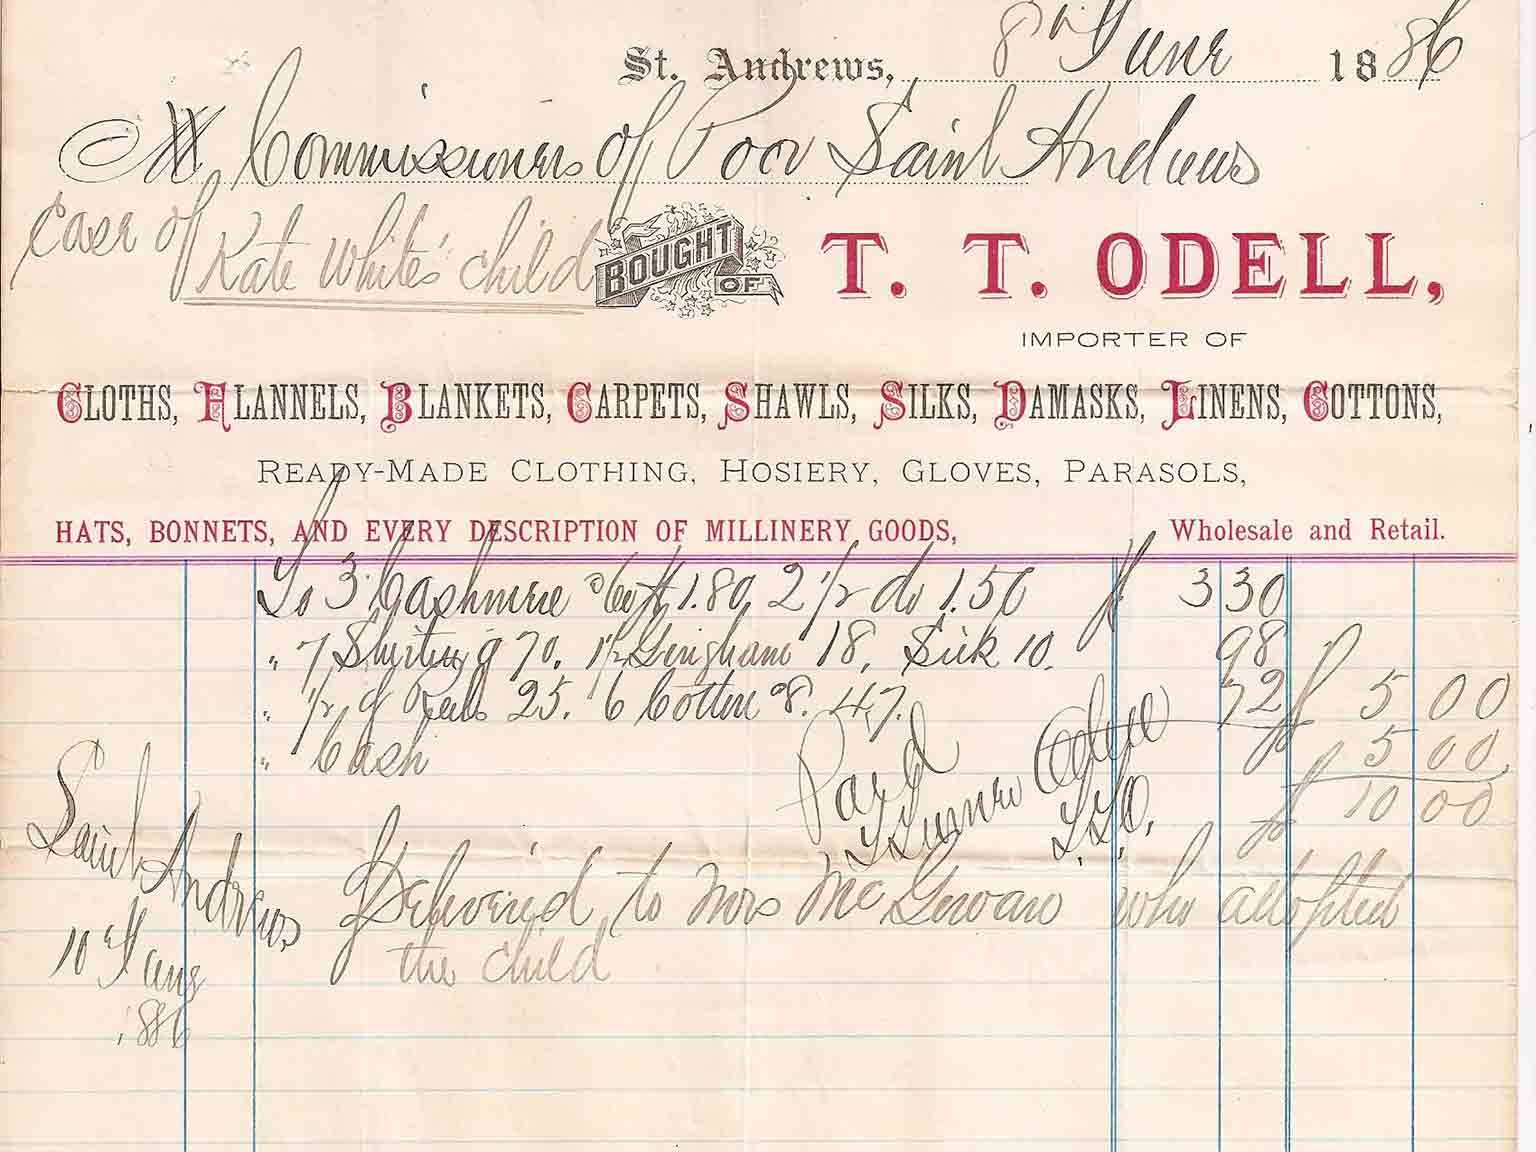 St. Andrews, 8th June 1886
Commissioners of Poor Saint Andrews
Case of Kate White's child
BOUGHT OF T. T. ODELL,
IMPORTER OF
CLOTHS, FLANNELS, BLANKETS, CARPETS, SHAWLS, SILKS, DAMASKS, LINENS, COTTONS,
READY-MADE CLOTHING, HOSIERY, GLOVES, PARASOLS,
HATS, BONNETS, AND EVERY DESCRIPTION OF MILLINERY GOODS, Wholesale and Retail.
To 3 Cashmere 60 1.80, 2 1/2 do 1.50 $ 3 30
" 7 Shirting 70. 1 1/2 Gingham 18, Silk 10. 98
" 1/2 Reels 25. 6 Cotton 8. 47. 72 $ 5 00
" Cash 5 00
Paid $ 10 00
Odell
T.T.O.
Saint Andrews
10th June
1886
Delivered to Mrs McGowan who adopted
the child